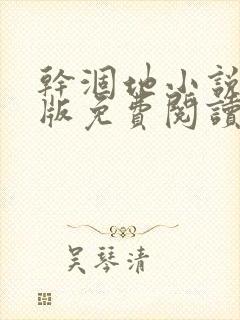 幹涸地小說
版免費閱讀
吴琴清